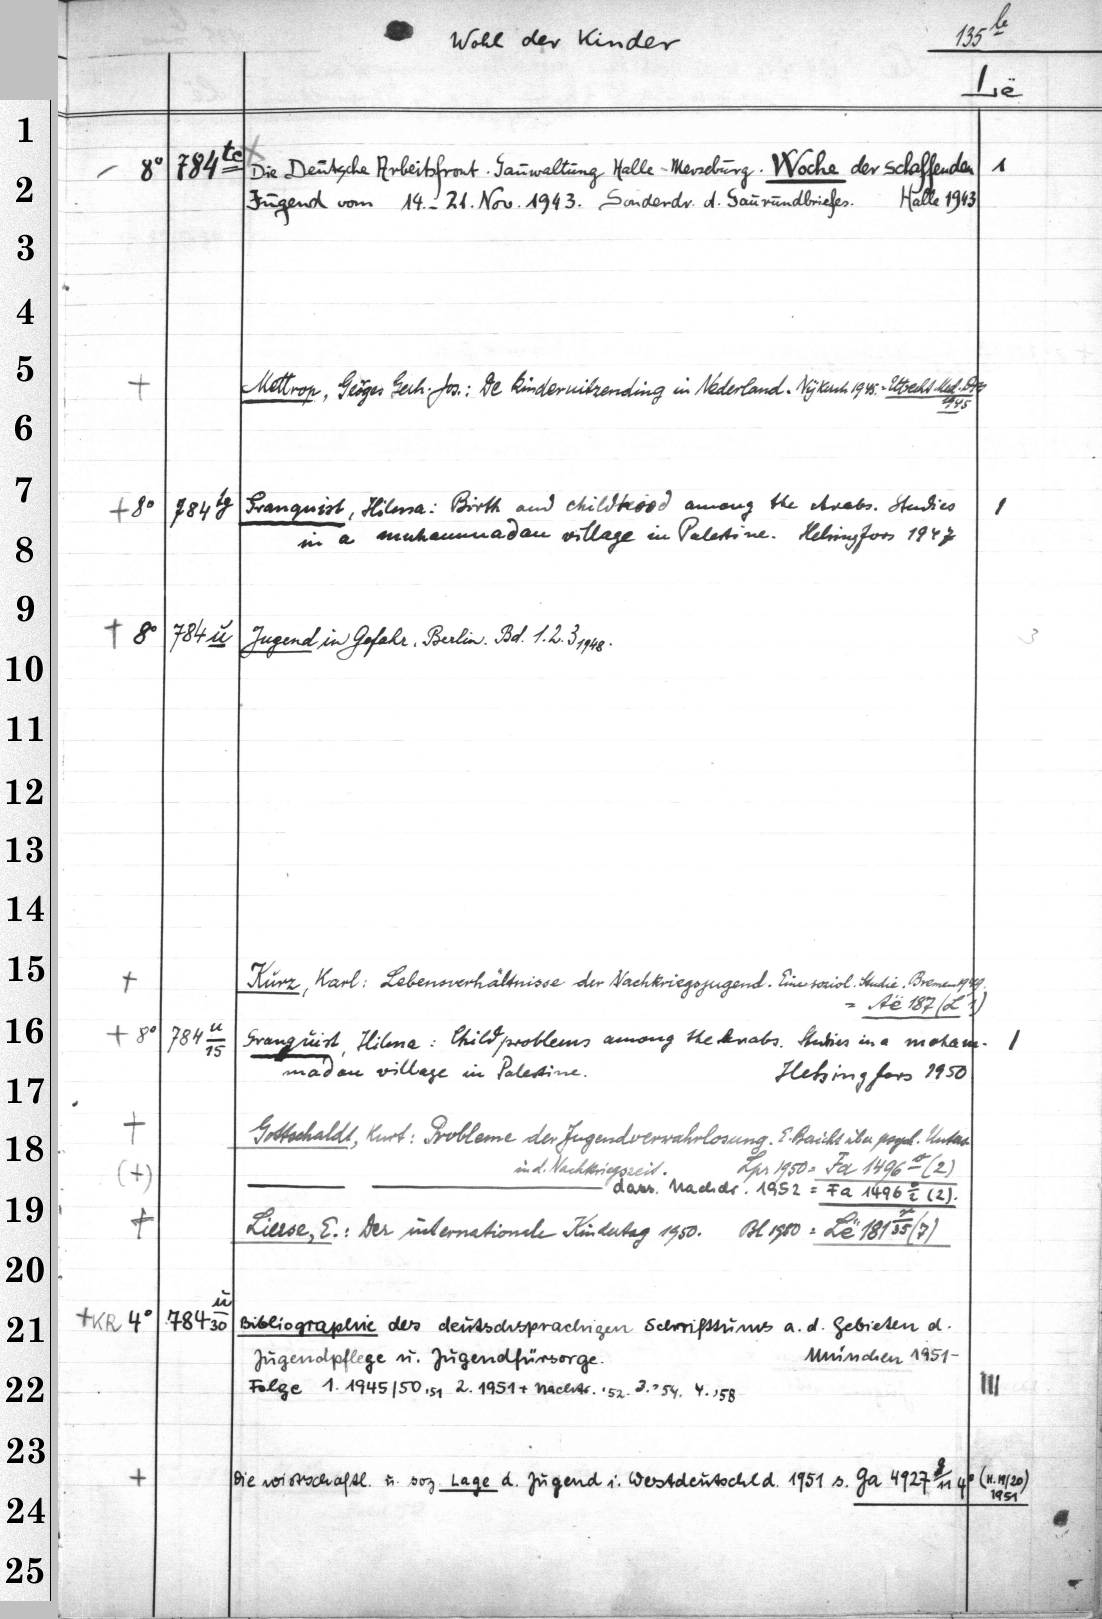 Wohl der Kinder 135 le
Lë
1
– 8° 784 te Die Deutsche Arbeitsfront. Gauwaltung Halle-Merseburg. Woche der schaffenden 1
2
Jugend vom 14.–21. Nov. 1943. Sonderdr. d. Gaurundbriefes. Halle 1943
3
4
5
+ Mottrop, Georges Gerh. Jos.: De kinderuitzending in Nederland. Nijkerk 1945. = Utrecht Med. Diss
1945
6
7
+ 8° 784 tg Granquist, Hilma: Birth and childhood among the Arabs. Studies 1
8
in a muhammadan village in Palestine. Helsingfors 1947
9
+ 8° 784 ü Jugend in Gefahr. Berlin. Bd. 1.2.3 1948. 3
10
11
12
13
14
15
+ Kurz, Karl: Lebensverhältnisse der Nachkriegsjugend. Eine soziol. Studie. Bremen 1949.
= Aë 187 (L 1)
16
+ 8° 784 u/15 Granquist, Hilma: Child problems among the Arabs. Studies in a moham- 1
17
madan village in Palestine. Helsingfors 1950
18
+ Gottschaldt, Kurt: Probleme der Jugendverwahrlosung. E. Bericht über psychol. Unters.
in d. Nachkriegszeit. Lpz 1950 = Fa 1496 (2)
(+) dass. Nachdr. 1952 = Fa 1496 (2).
19
+ Lierse, E.: Der internationale Kindertag 1950. Bl 1950 = Lë 181 /35 (7)
20
+KR 4° 784 ü/30 Bibliographie des deutschsprachigen Schrifttums a. d. Gebieten d.
21
Jugendpflege u. Jugendfürsorge. München 1951–
22
Folge 1. 1945/50.'51 2. 1951 + Nachtr. '52. 3. '54. 4. '58 III
23
+ Die wirtschaftl. u. soz. Lage d. Jugend i. Westdeutschld. 1951 s. Ga 4927 g/11 4° (H. 19/20)
1951
24
25